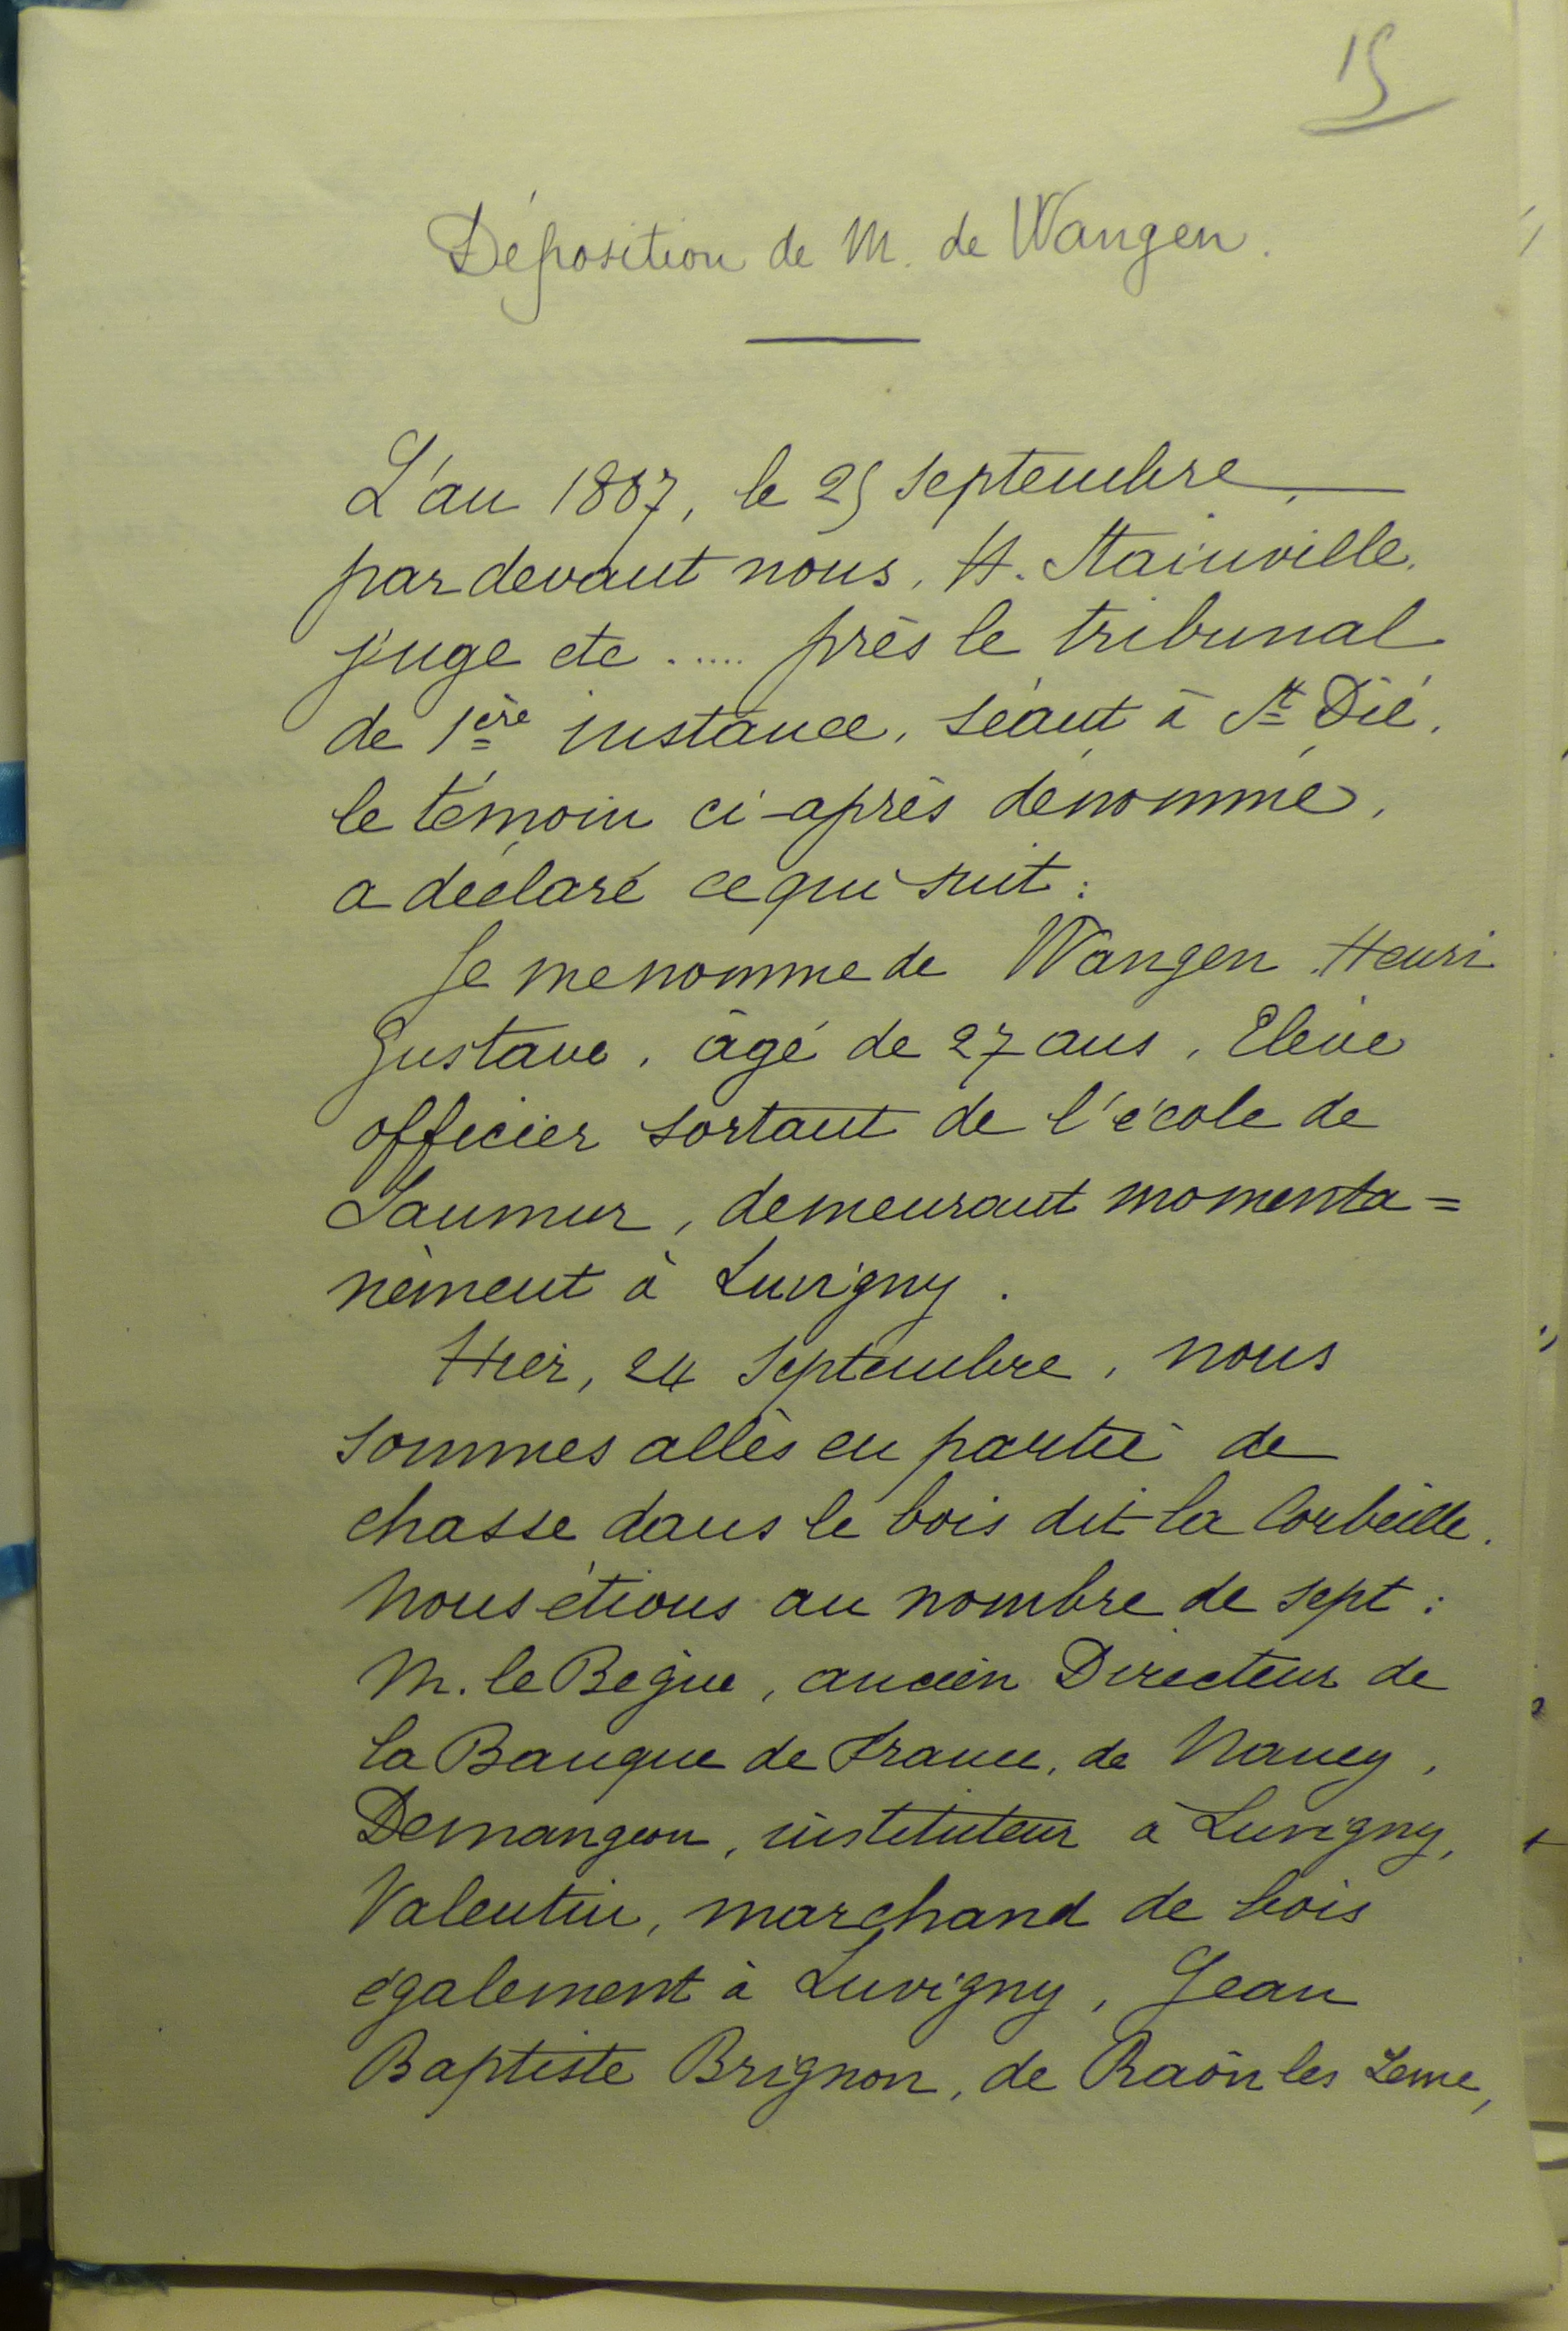 15
Déposition de M. de Wangen.
L'an 1887, le 25 Septembre,
par devant nous, H. Stainville,
juge etc ..... près le tribunal
de 1ère instance, séant à St Dié,
le témoin ci-après dénommé,
a déclaré ce qui suit :
Je me nomme de Wangen Henri
Gustave, âgé de 27 ans, Elève
officier sortant de l'école de
Saumur, demeurant momenta=
nément à Luvigny.
Hier, 24 Septembre, nous
sommes allés en partie de
chasse dans le bois dit la Corbeille.
Nous étions au nombre de sept :
M. le Bègue, ancien Directeur de
la Banque de France, de Nancy,
Demangeon, instituteur à Luvigny,
Valentin, marchand de bois
également à Luvigny, Jean
Baptiste Brignon, de Raôn les Leau,